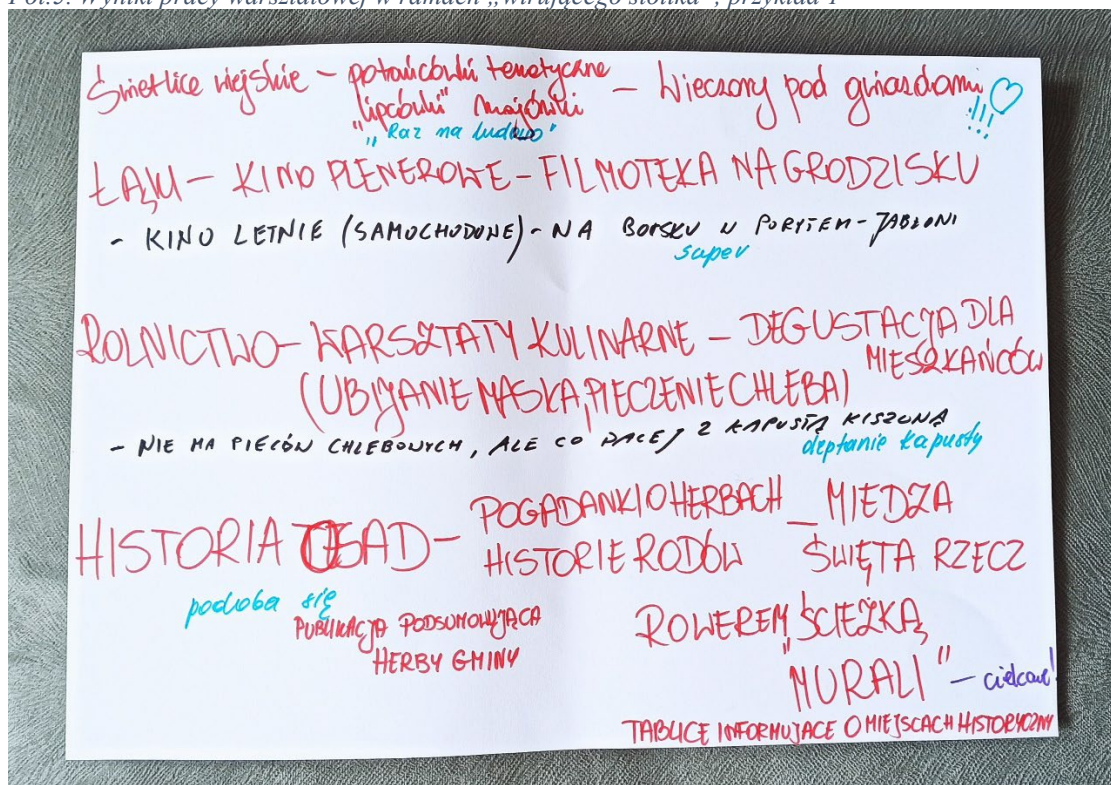 Fot.5. Wyniki pracy warsztatowej w ramach „wirującego stolika”, przykład 1
Świetlice wiejskie – potańcówki tematyczne – Wieczory pod gwiazdami !!! ♡
"lipcówki" majówki
„Raz na ludowo"
ŁĄKI – KINO PLENEROWE – FILMOTEKA NA GRODZISKU
- KINO LETNIE (SAMOCHODOWE) - NA BORSKU W PORYTEM-JABŁONI
super
ROLNICTWO – WARSZTATY KULINARNE – DEGUSTACJA DLA
MIESZKAŃCÓW
(UBIJANIE MASŁA, PIECZENIE CHLEBA)
- NIE MA PIECÓW CHLEBOWYCH, ALE CO DALEJ Z KAPUSTĄ KISZONĄ
deptanie kapusty
HISTORIA OSAD – POGADANKI O HERBACH – MIEDZA
HISTORIE RODÓW ŚWIĘTA RZECZ
podoba się
PUBLIKACJA PODSUMOWUJĄCA
HERBY GMINY
ROWEREM ŚCIEŻKĄ
"MURALI" – ciekawe!
TABLICE INFORMUJACE O MIEJSCACH HISTORYCZNY